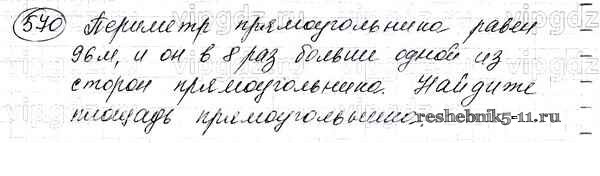 570 Периметр прямоугольника равен
96м, и он в 8 раз больше одной из
сторон прямоугольника. Найдите
площадь прямоугольника.
reshebnik5-11.ru